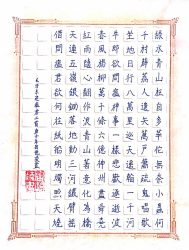 綠水青山枉自多華佗無奈小蟲何
千村薜荔人遺矢萬戶蕭疏鬼唱歌
坐地日行八萬里巡天遙看一千河
牛郎欲問瘟神事一樣悲歡逐逝波
春風楊柳萬千條六億神州盡舜堯
紅雨隨心翻作浪青山著意化為橋
天連五嶺銀鋤落地動三河鐵臂搖
借問瘟君欲何往紙船明燭照天燒